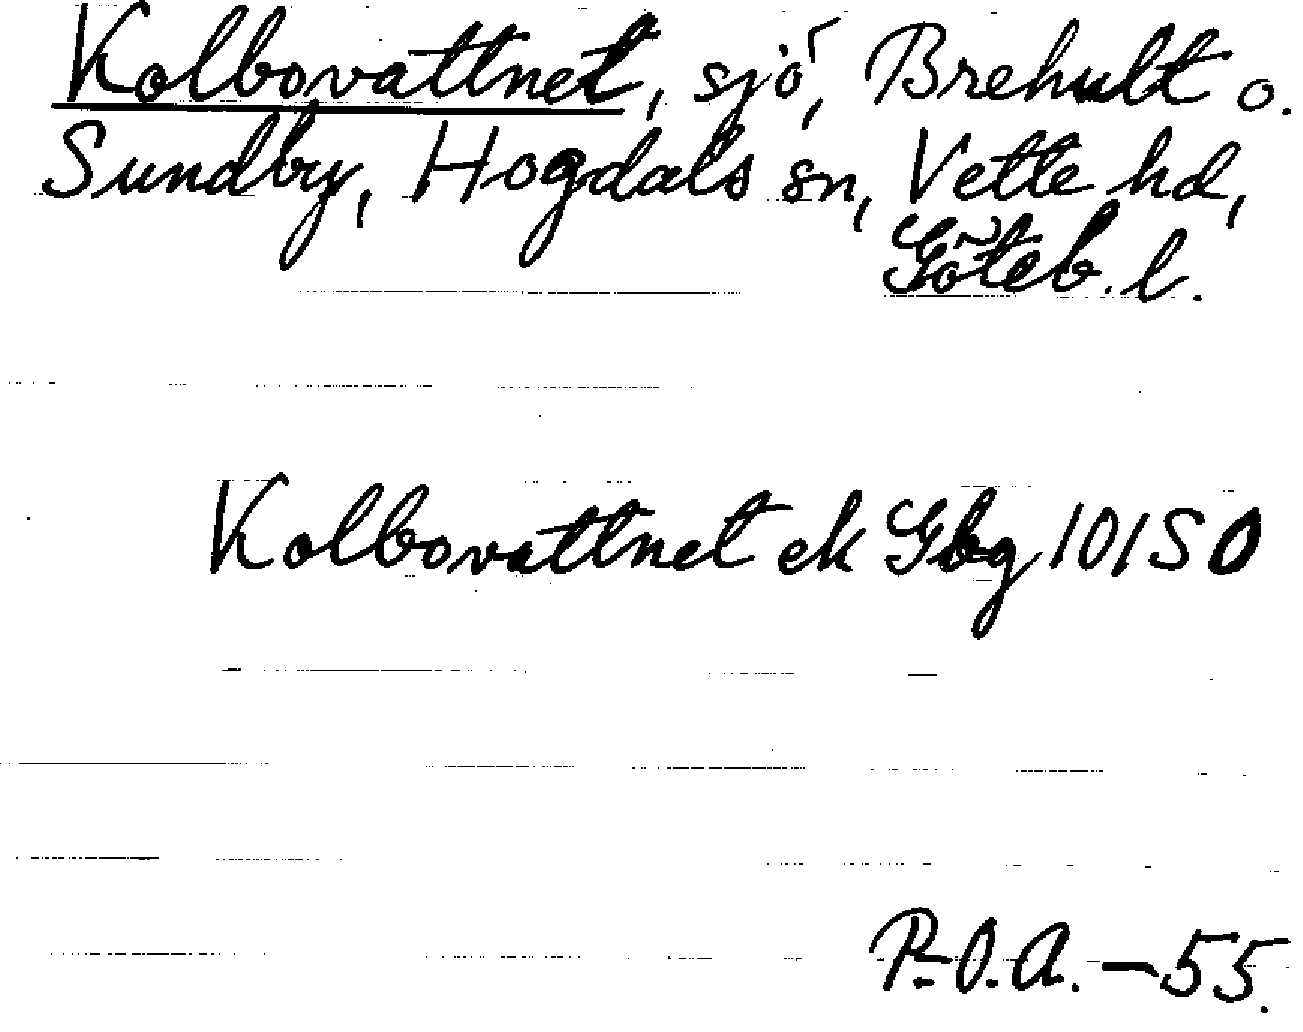 Kolbovattnet, sjö, Brehult o.
Sundby, Hogdals sn, Vette hd,
Göteb. l.
Kolbovattnet ek Gbg 10150
P.O.A. - 55.